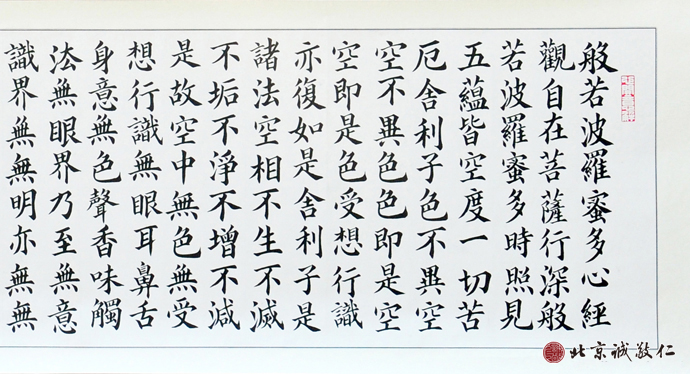 般若波羅蜜多心經
觀自在菩薩行深般
若波羅蜜多時照見
五蘊皆空度一切苦
厄舍利子色不異空
空不異色色即是空
空即是色受想行識
亦復如是舍利子是
諸法空相不生不滅
不垢不淨不增不減
是故空中無色無受
想行識無眼耳鼻舌
身意無色聲香味觸
法無眼界乃至無意
識界無無明亦無無
北京诚敬仁